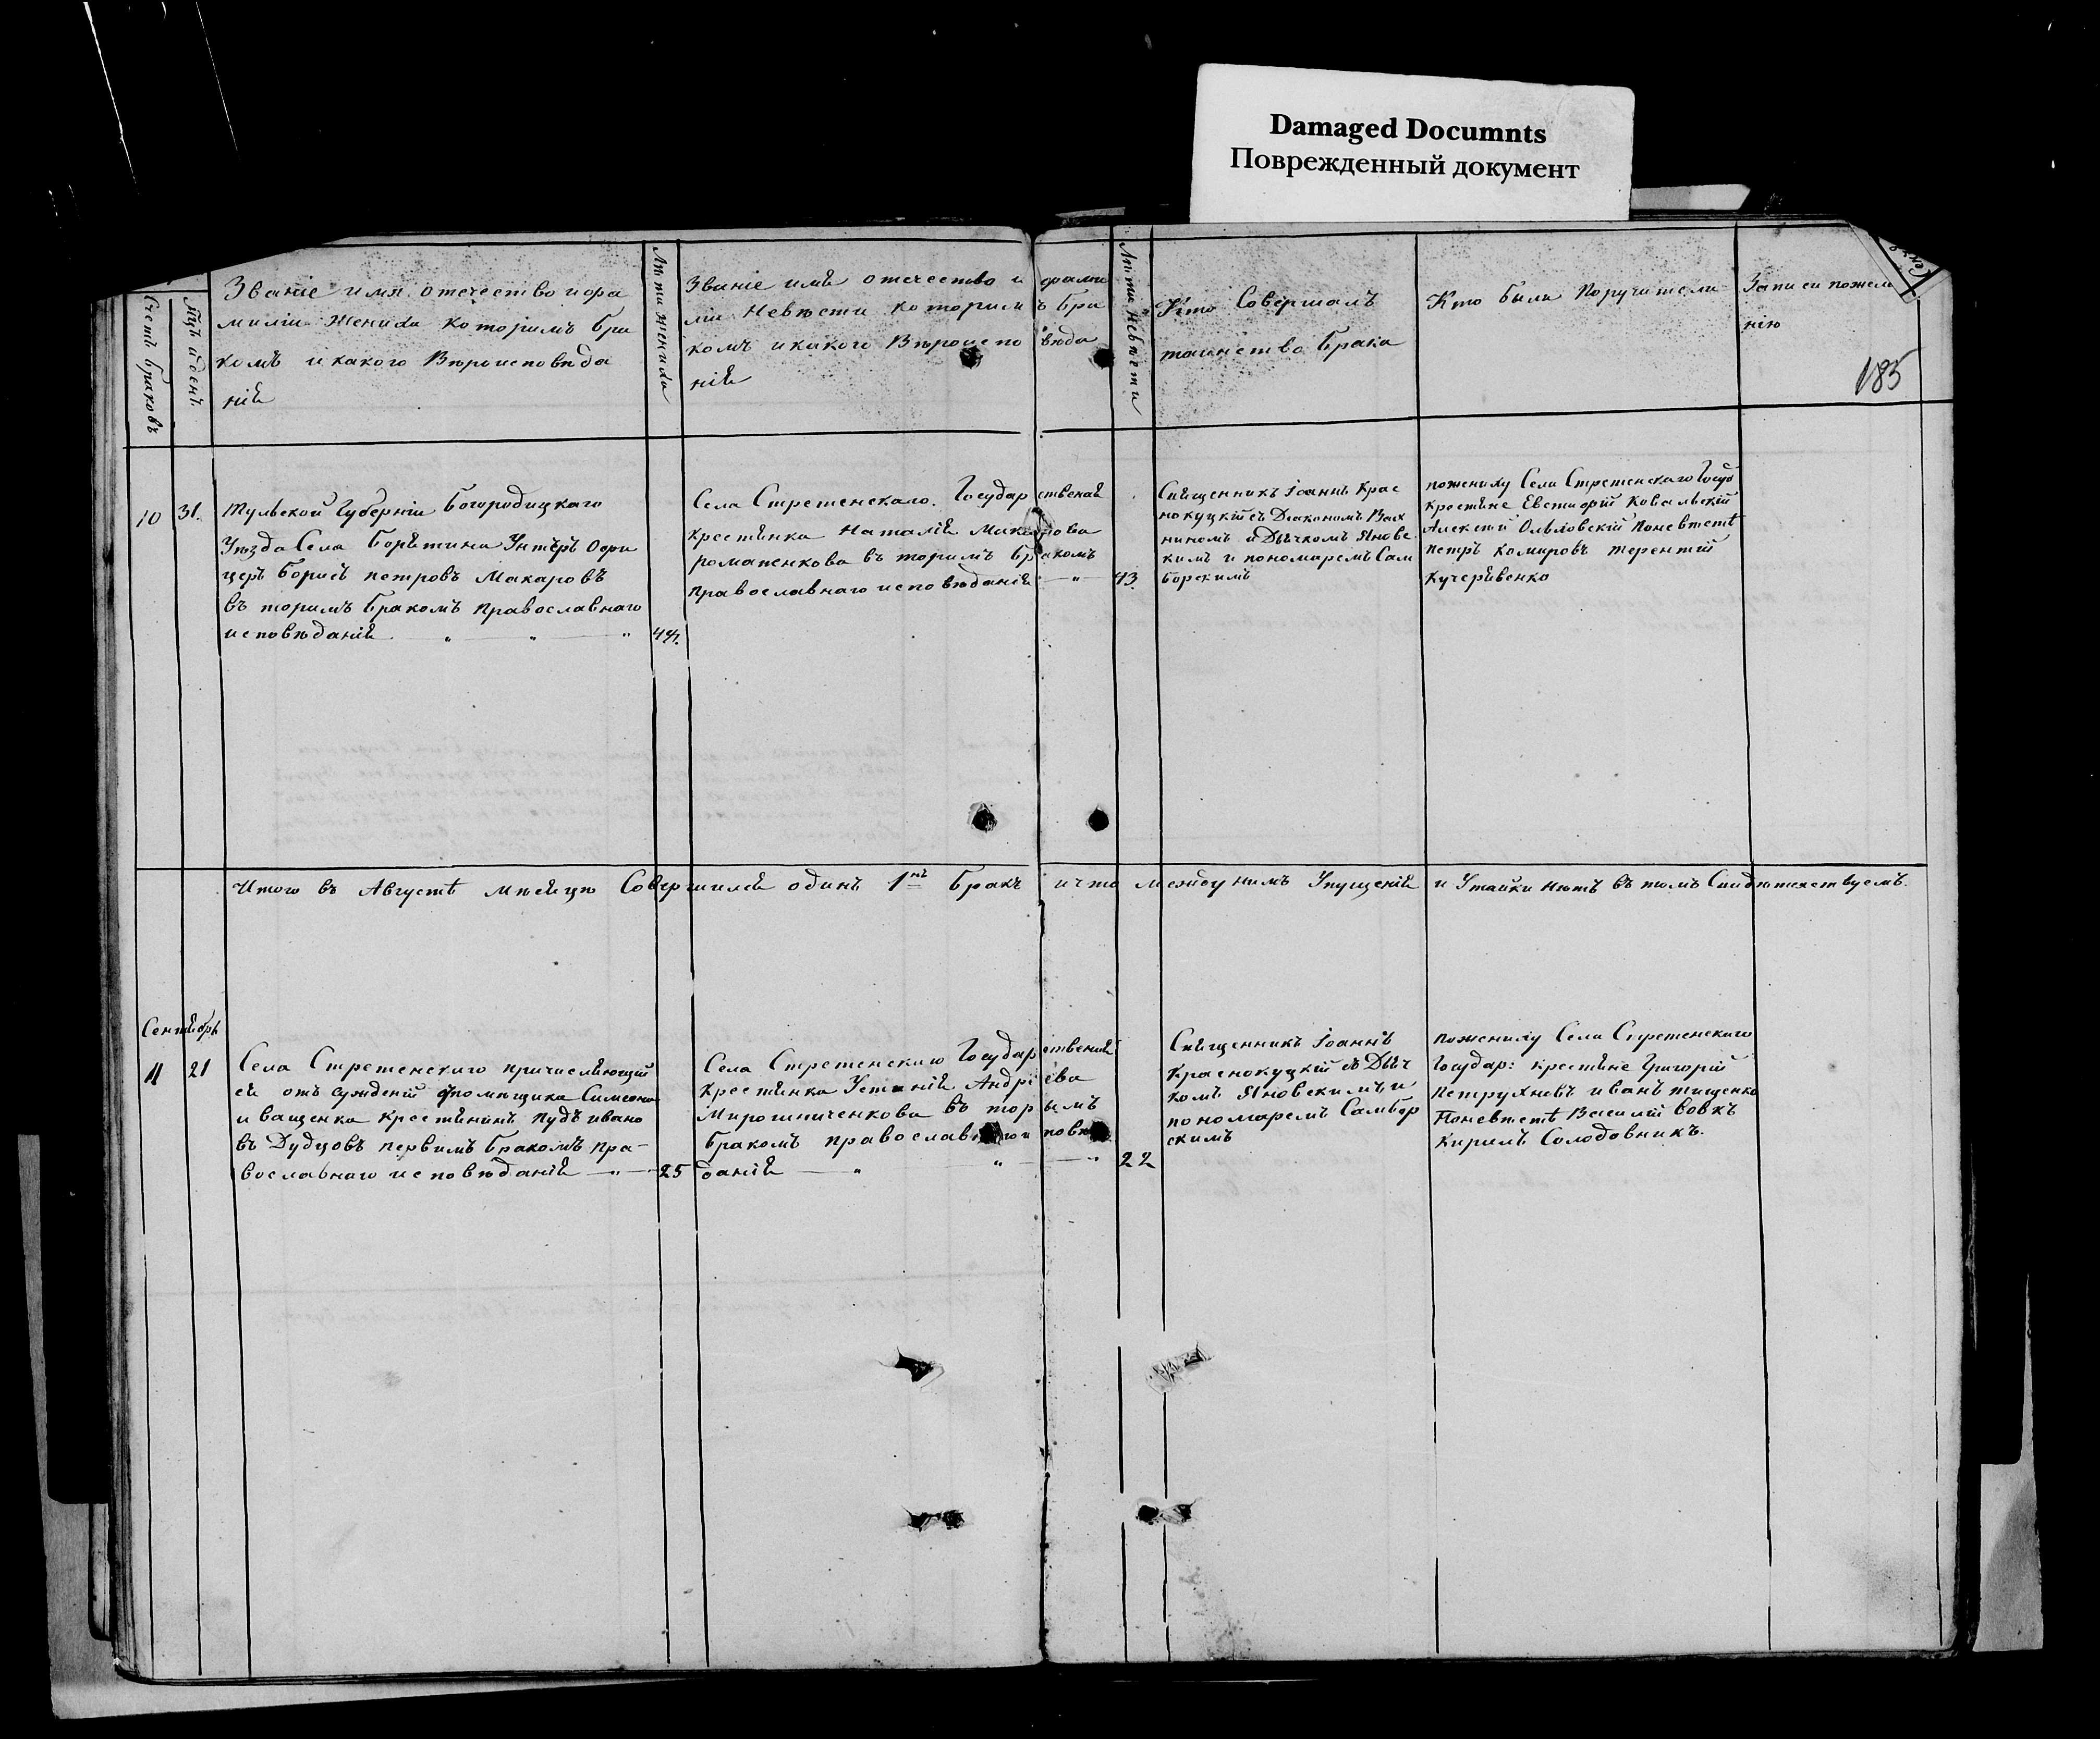 Damaged Documnts
Поврежденный документ
Счетъ браковъ
Мцъ и день
Званіе имя отечество и фа
миліи жениха которимъ бра
комъ и какого Вѣроисповѣда
нія
Лѣта жениха
Званіе имя отечество и фами
ліи Невѣсти которим ъ бра
комъ и какого Вѣроиспо вѣда
нія
Лѣта невѣсти
Кто Совершалъ
таинство брака
Кто были Поручители
Записи пожела
нію
185
10 31.
Тульской Губерніи Богородицкаго
Уѣзда Села Борятина Унтеръ Офи
церъ Борисъ петровъ Макаровъ
въ торимъ бракомъ православнаго
исповѣданія
44.
Села Стретенскаго Государ ственая
крестянка Наталія
романенкова въ торимъ бр акомъ
православнаго исповѣданія
43.
Священникъ Іоаннъ Крас
нокуцкій съ Диакономъ
и Дьячкомъ Янове
кимъ и пономаремъ Сам
борскимъ
пожениху Села Стретенскаго Госуд
крестяне Евстафій Ковальскій
Алексѣй поневѣстѣ
петръ Комаровъ терентій
Кучерявенко
Итого въ Августѣ мѣсяцѣ Совершился одинъ 1нъ бракъ и что между нимъ Упущенія и Утайки нѣтъ въ томъ Свидѣтелствуемъ.
Сентябрь
11 21
Села Стретенскаго причисляющій
ся отъ помѣщика Симеона
иващенка крестянинъ пудъ ивано
въ Дудцовъ первимъ бракомъ пра-
вославнаго исповѣданія
25
Села Стретенскаго Государ ственая
крестянка Устинія Андрі ева
Мирошниченкова въ тор ымъ
бракомъ православнаго и повѣ
данія
22
Священникъ Іоаннъ
Краснокуцкій съ Дяч
комъ Яновскимъ и
пономаремъ Самбор
скимъ
пожениху Села Стретенскаго
Государ: крестяне Григорій
петрухневъ иванъ тищенко
Поневѣстѣ Василій вовкъ
Кирилъ Солодовникъ.